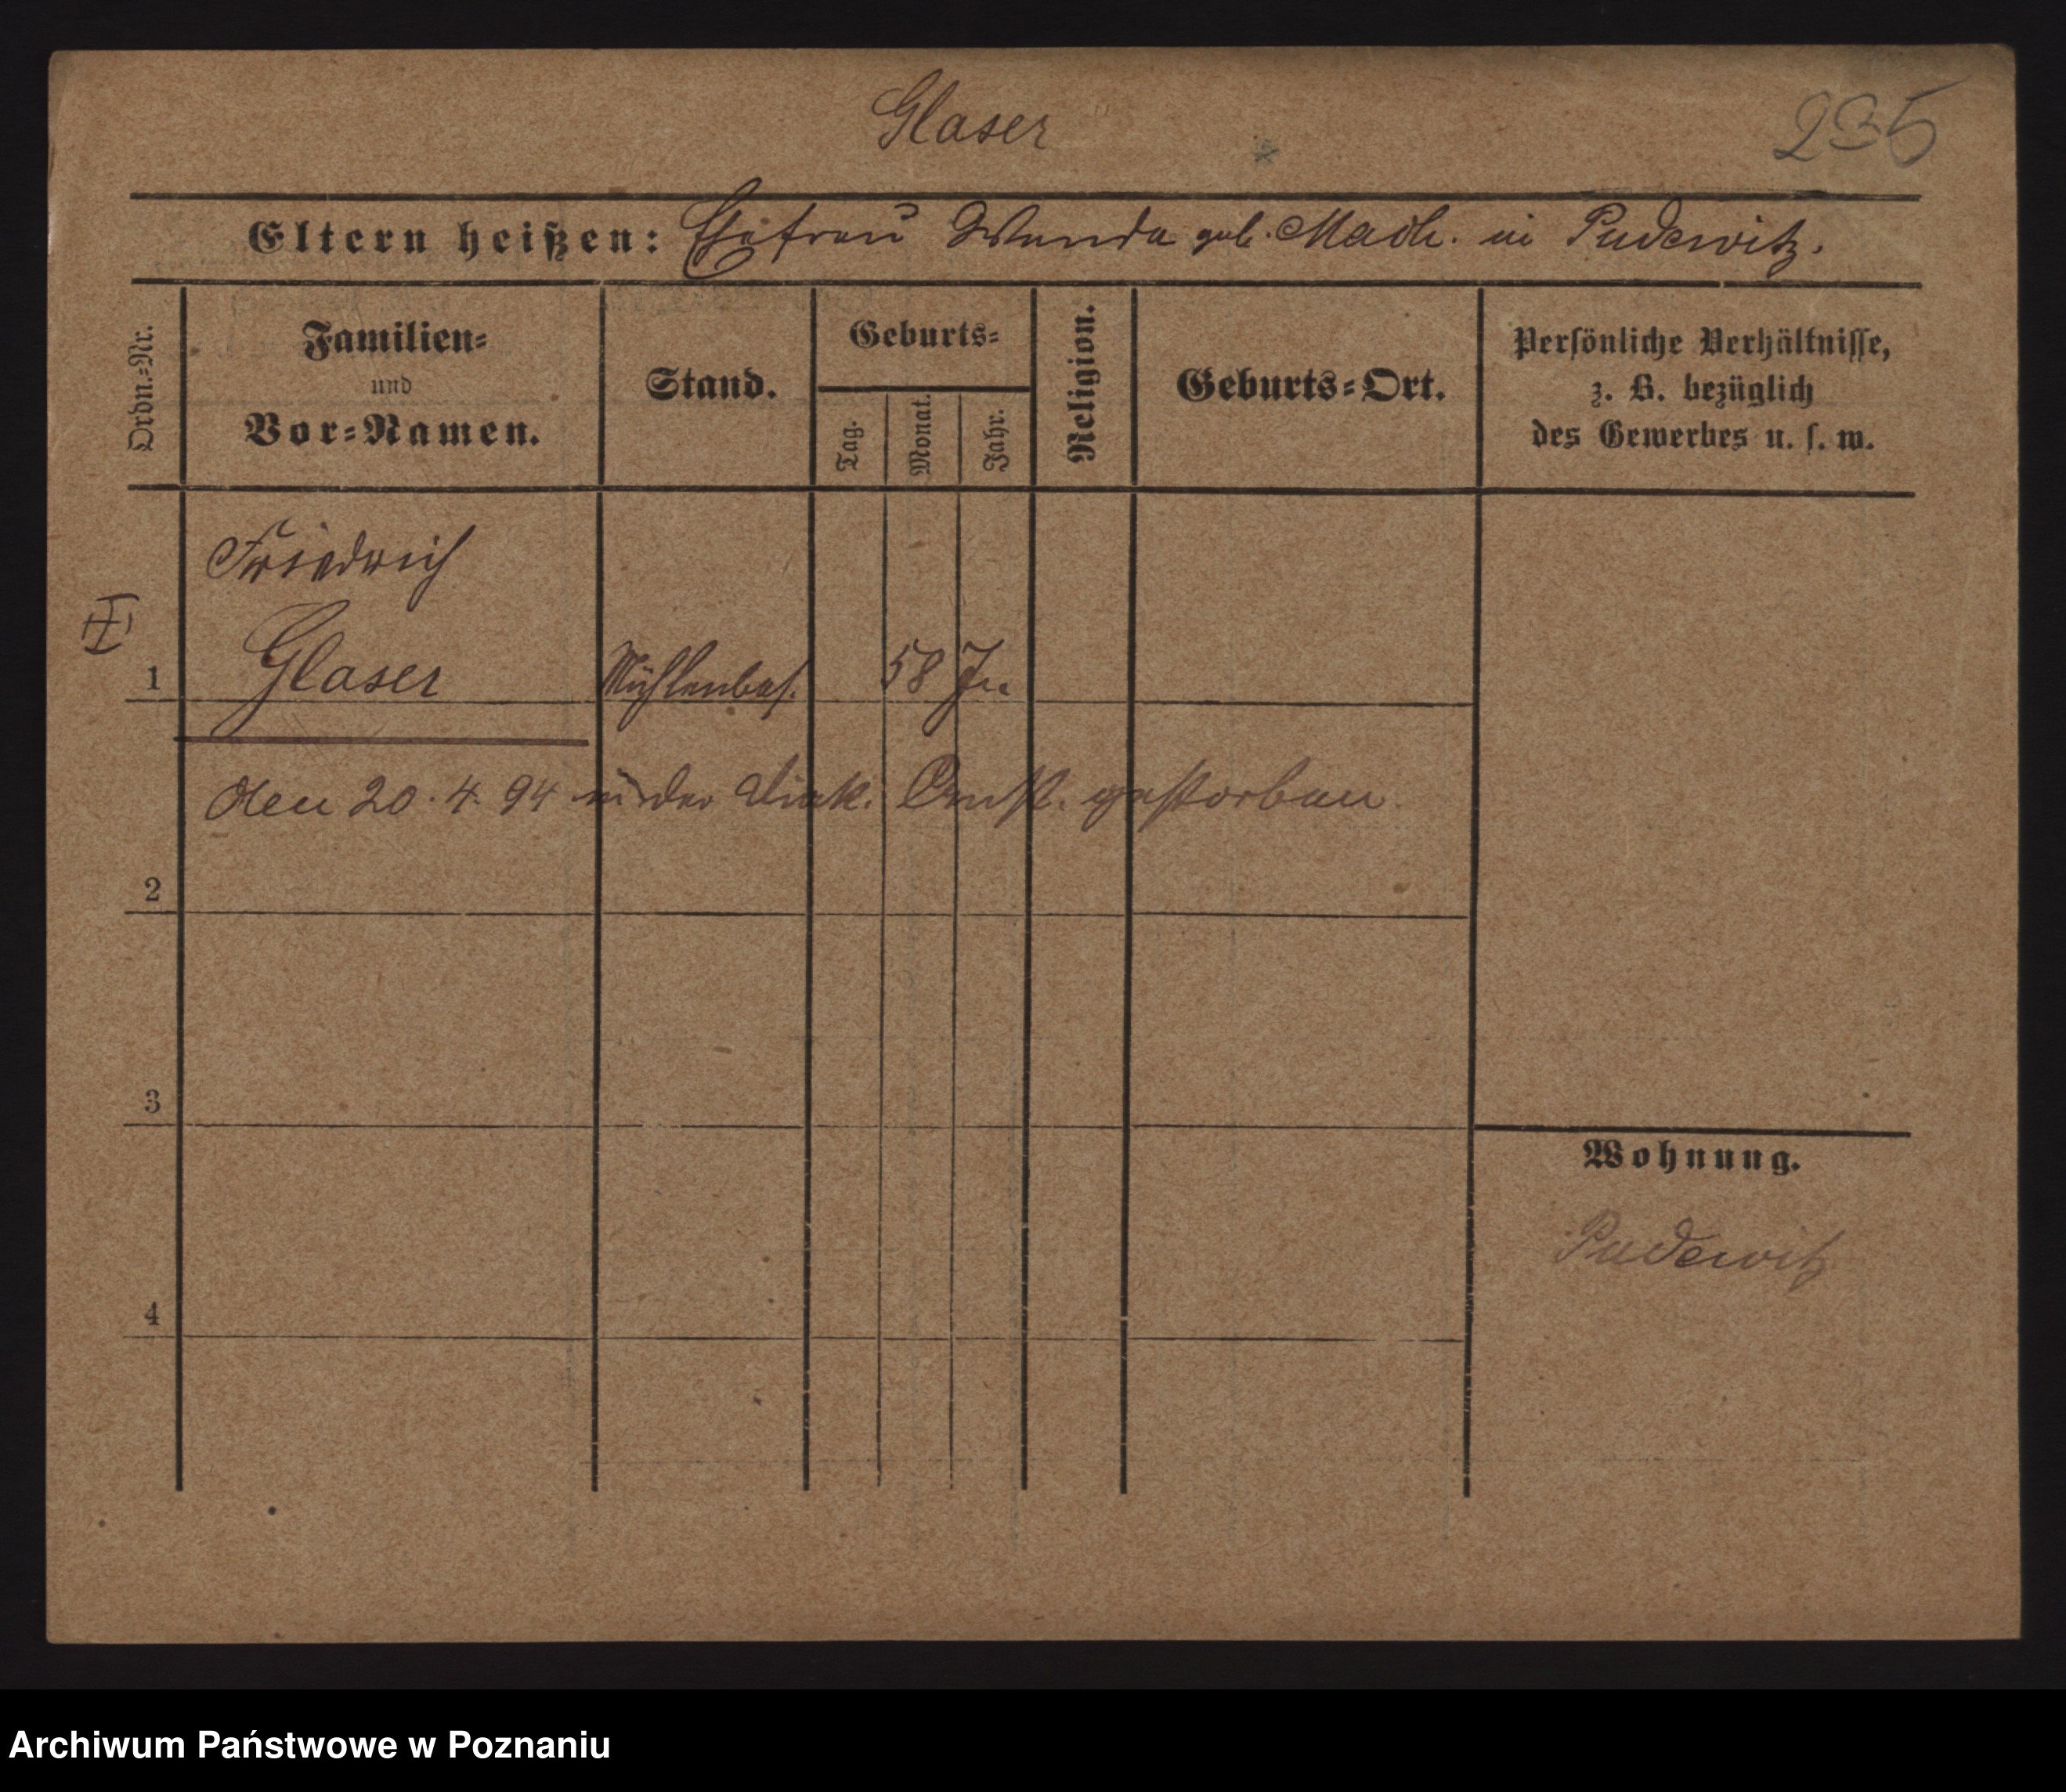 Glaser
235
Eltern heißen: Ehefrau Wanda geb. Mach. in Pudewitz.
Ordn.-Nr.
Familien-
und
Vor-Namen.
Stand.
Geburts-
Tag.
Monat.
Jahr.
Religion.
Geburts-Ort.
Persönliche Verhältnisse,
z. B. bezüglich
des Gewerbes u. s. w.
Friedrich
1 Glaser Mühlenbes. 58 J
den 20. 4. 94 in der Diak. Anst. gestorben.
2
3
Wohnung.
Pudewitz
4
Archiwum Państwowe w Poznaniu